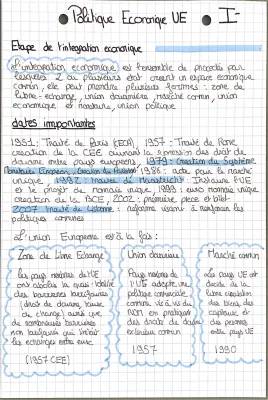 Politique Economique UE I-
Etape de l'intégration économique
L'intégration économique est l'ensemble de procédés par
lesquels 2 ou plusieurs état créent un espace économique
commun, elle peut prendre plusieurs formes : zone de
libre-échange, union douanière, marché commun, union
économique et monétaire, union politique
dates importantes
1951 : Traité de Paris (CECA), 1957 : Traité de Rome
création de la CEE ouvrant la supression des droit de
douane entre pays européens, 1979 : Création du Système
Monétaire Européen, 1986 : acte pour le marché
unique, 1992 : Traité de Maastricht : UE
et le projet de monnaie unique, 1999 : euro monnaie unique
création de la BCE, 2002 : première pièce et billet
2007 Traité de Lisbonne : réforme visant à renforcer les
politiques communes
L'union Européenne est à la fois :
Zone de Libre Echange
les pays membres de l'UE
ont abolis la quasi-totalité
des barrières tarifaires
(droit de douane, taxe
de change) ainsi que
de nombreuses barrières
non tarifaires qui limitait
les échanges entre eux
(1957 CEE)
Union douanière
Pays membres de
l'UE adopte une
politique commerciale
commune vis à vis du
NON en pratiquant
des droits de douane
extérieur commun
1957
Marché commun
Les Pays UE ont
décidé de la
libre circulation
des biens, des
capitaux et
des personnes
entre pays UE
1990